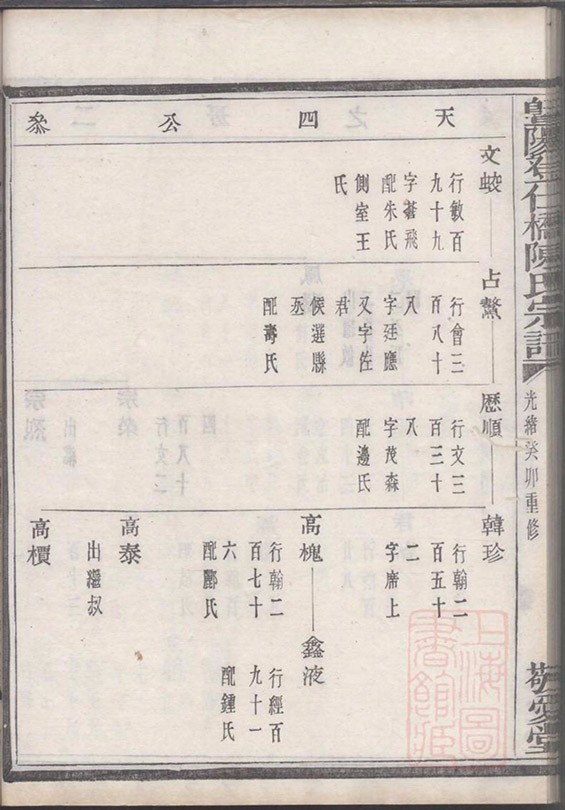 暨陽巒仁橋陳氏宗譜
光緒癸卯重修
敬愛堂
天四公叅
文蛟
行敏百
九十九
字蒼飛
配朱氏
側室王
氏
占鰲
行會三
百八十
八
字廷應
又字佐
君
候選縣
丞
配壽氏
歷順
行文三
百三十
八
字茂森
配邊氏
韓珍
行翰二
百五十
二
字席上
高槐
行翰二
百七十
六
配酈氏
鑫液
行經百
九十一
配鍾氏
高泰
出繼叔
高檟
上海圖
書館藏